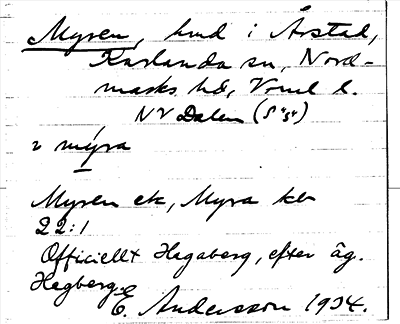 Myren, hmd i Årstad,
Karlanda sn, Nord-
marks hd, Vrml l.
NV Dalen (S "s")
2 mýra
Myren ek, Myra kb
22:1
Officiellt Hagaberg, efter äg.
Hagberg.
E. Andersson 1934.